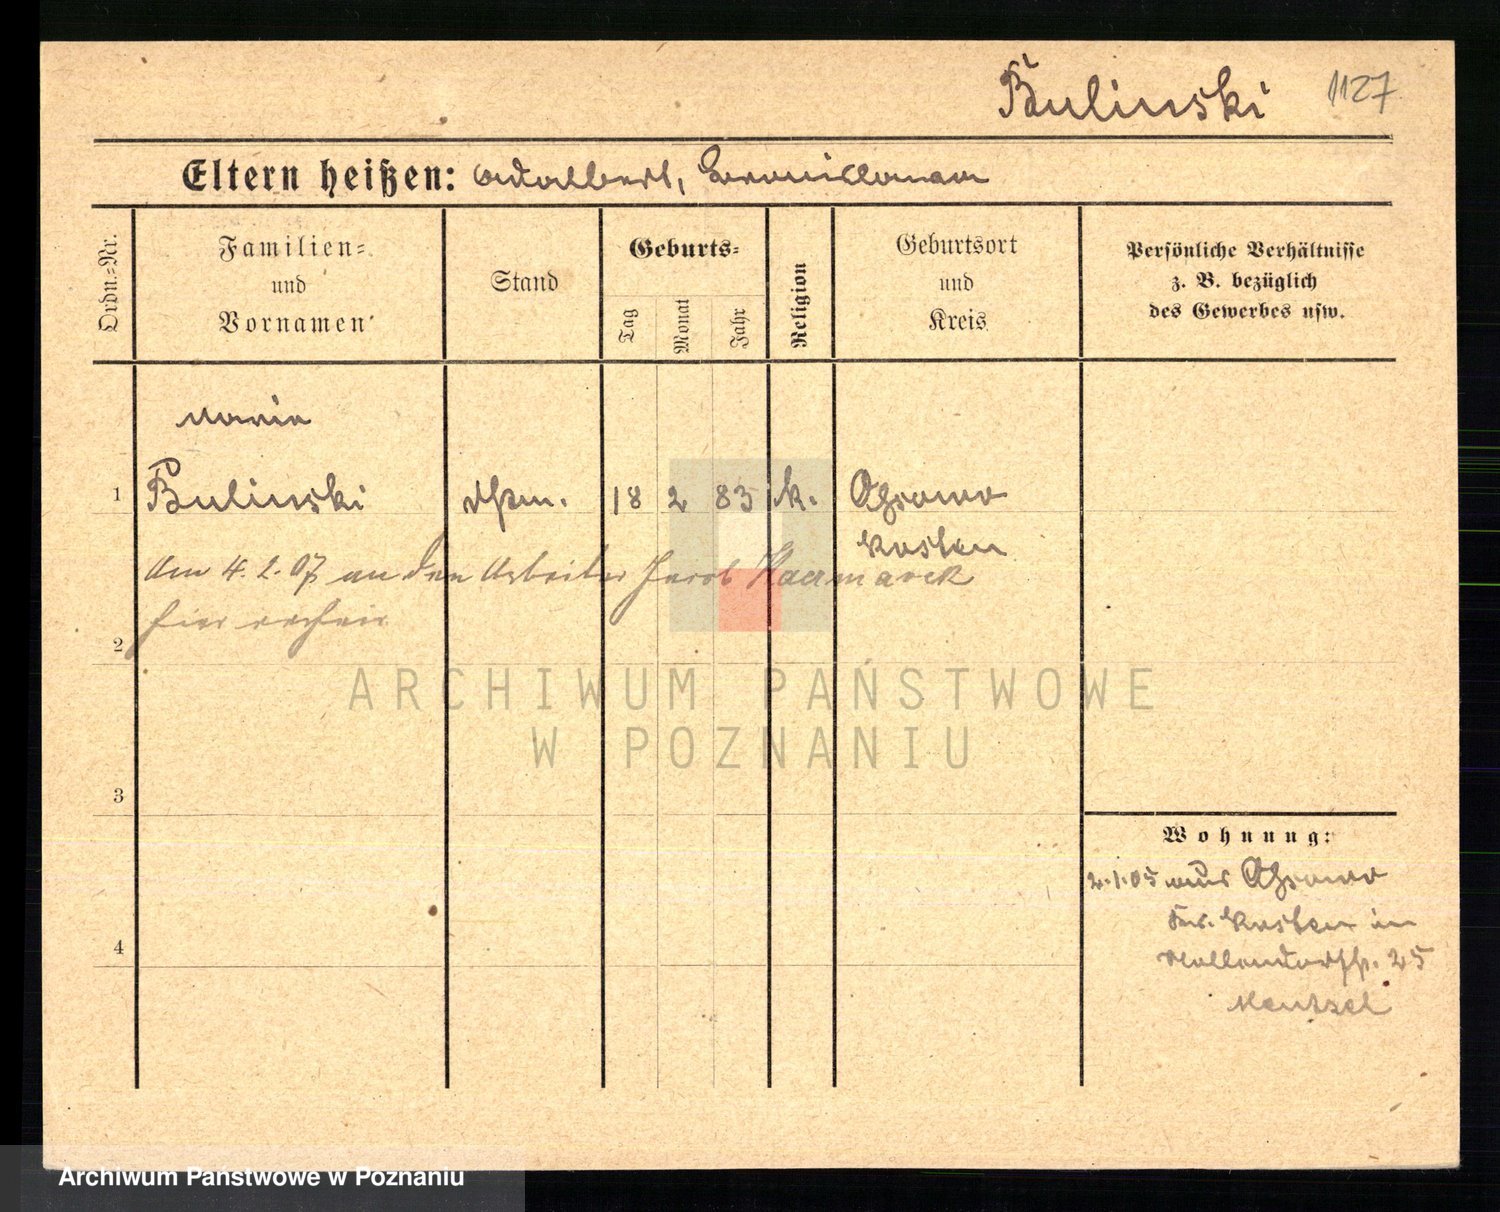 Bulinski 1127
Eltern heißen: Adalbert,
Ordn.-Nr.
Familien-
und
Vornamen
Stand
Geburts-
Tag
Monat
Jahr
Religion
Geburtsort
und
Kreis
Persönliche Verhältnisse
z. B. bezüglich
des Gewerbes usw.
Maria
1 Bulinski 18 2 83 k.
Kosten
Am 4. 2. 07 an den Arbeiter Jacob Kaczmarek
hier verheir
2
ARCHIWUM PAŃSTWOWE
W POZNANIU
3
4
Wohnung:
2.1.05 aus
Kr. Kosten in
25
Mentzel
Archiwum Państwowe w Poznaniu